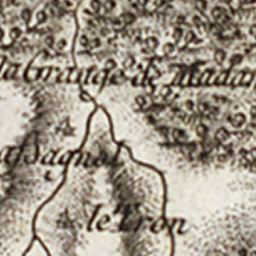 la Grange de Madam
assagnol
le Tron